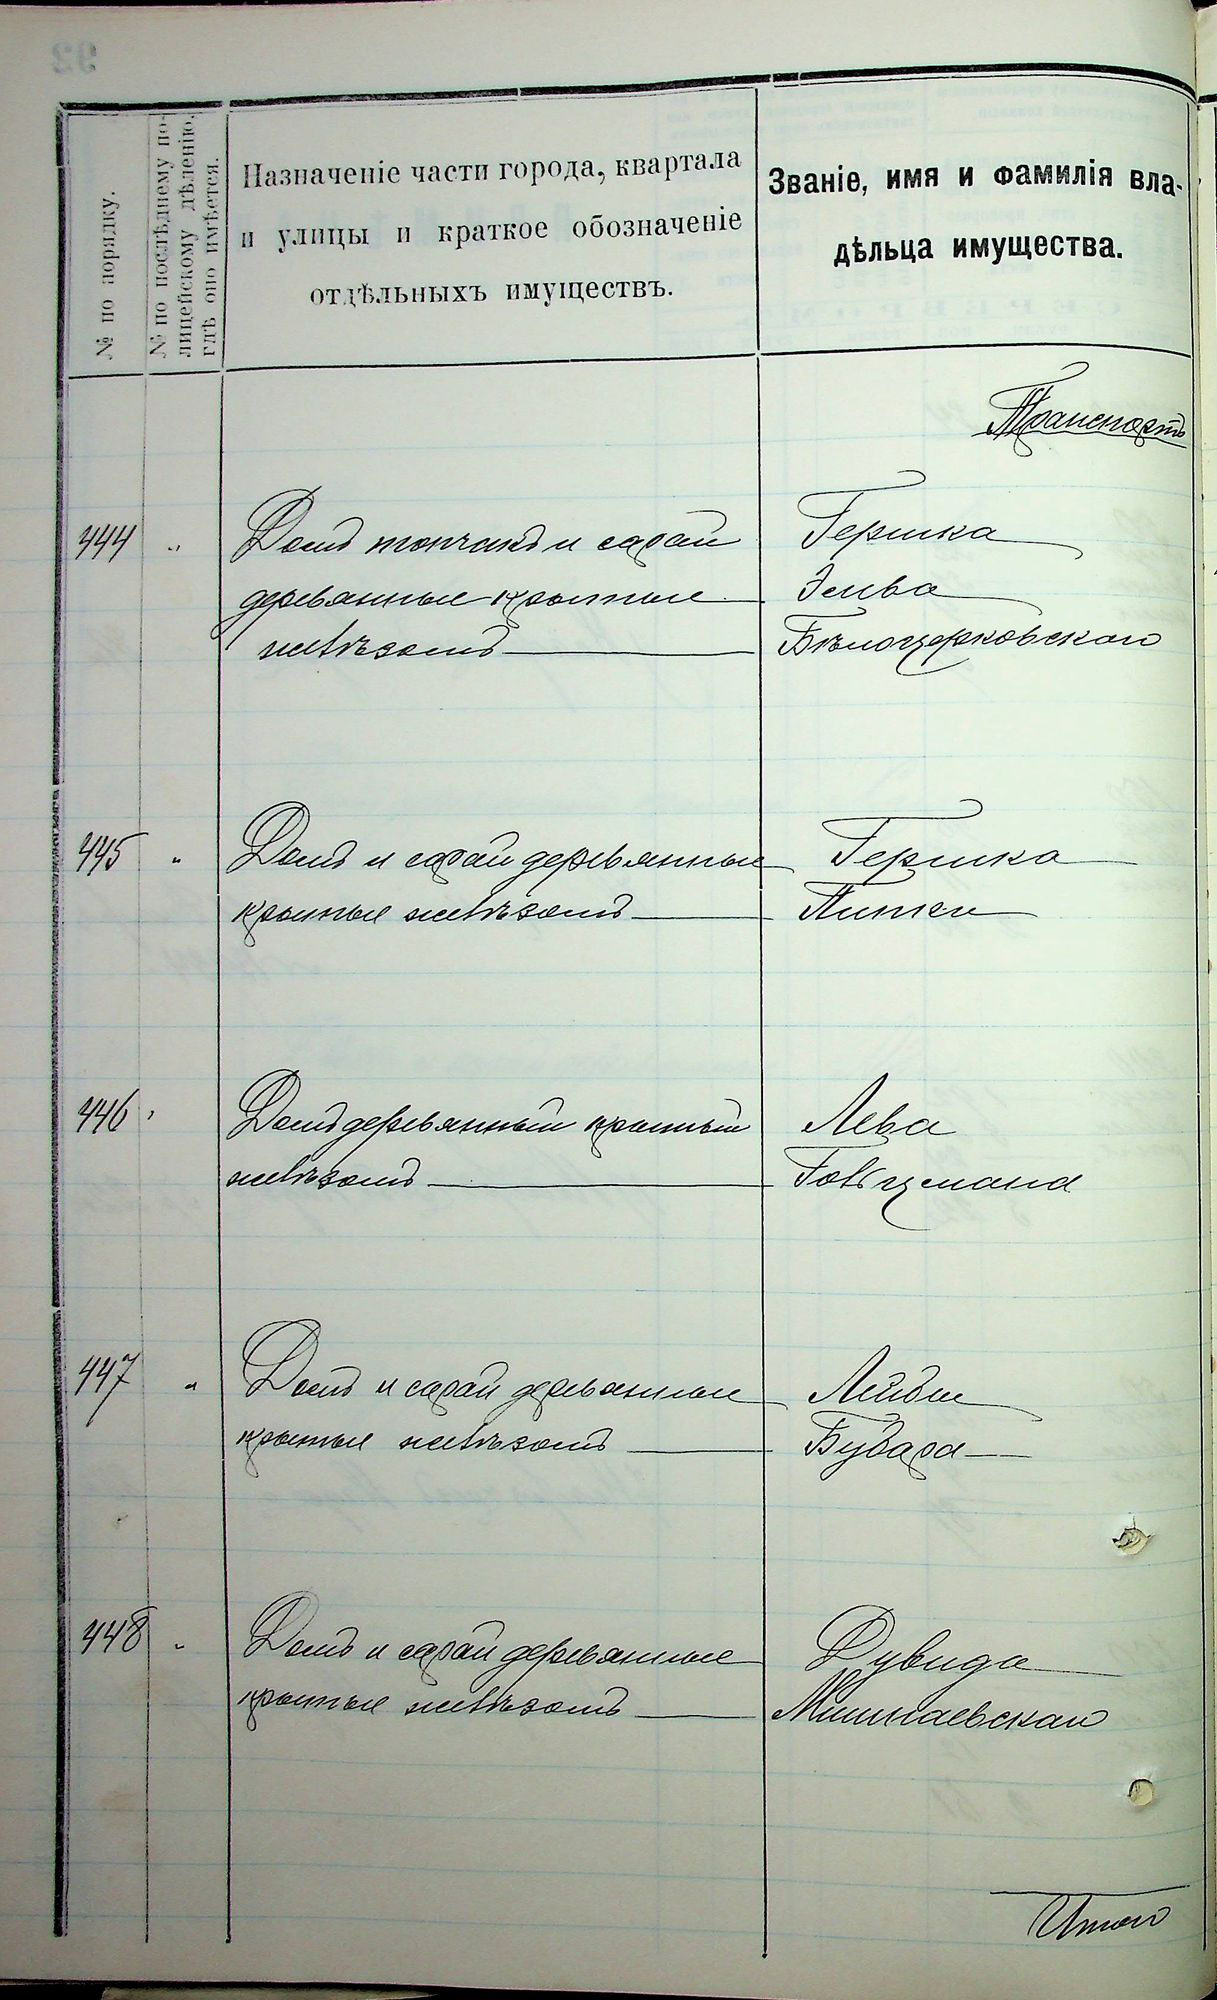 № по порядку.
№ по послѣднему по-
лицейскому дѣленію,
гдѣ оно имѣется.
Назначеніе части города, квартала
и улицы и краткое обозначеніе
отдѣльныхъ имуществъ.
Званіе, имя и фамилія вла-
дѣльца имущества.
Транспортъ
444 " Домъ топчакъ и сарай Гершка
деревянные крытые Зельва
желѣзомъ Бѣлоцерковскаго
445 " Домъ и сарай деревянные Гершка
крытые желѣзомъ
446 " Домъ деревянный крытый Лева
желѣзомъ Гольцмана
447 " Домъ и сарай деревянные Лейбы
крытые желѣзомъ Бубара
448 " Домъ и сарай деревянные Дувида
крытые желѣзомъ
Итого